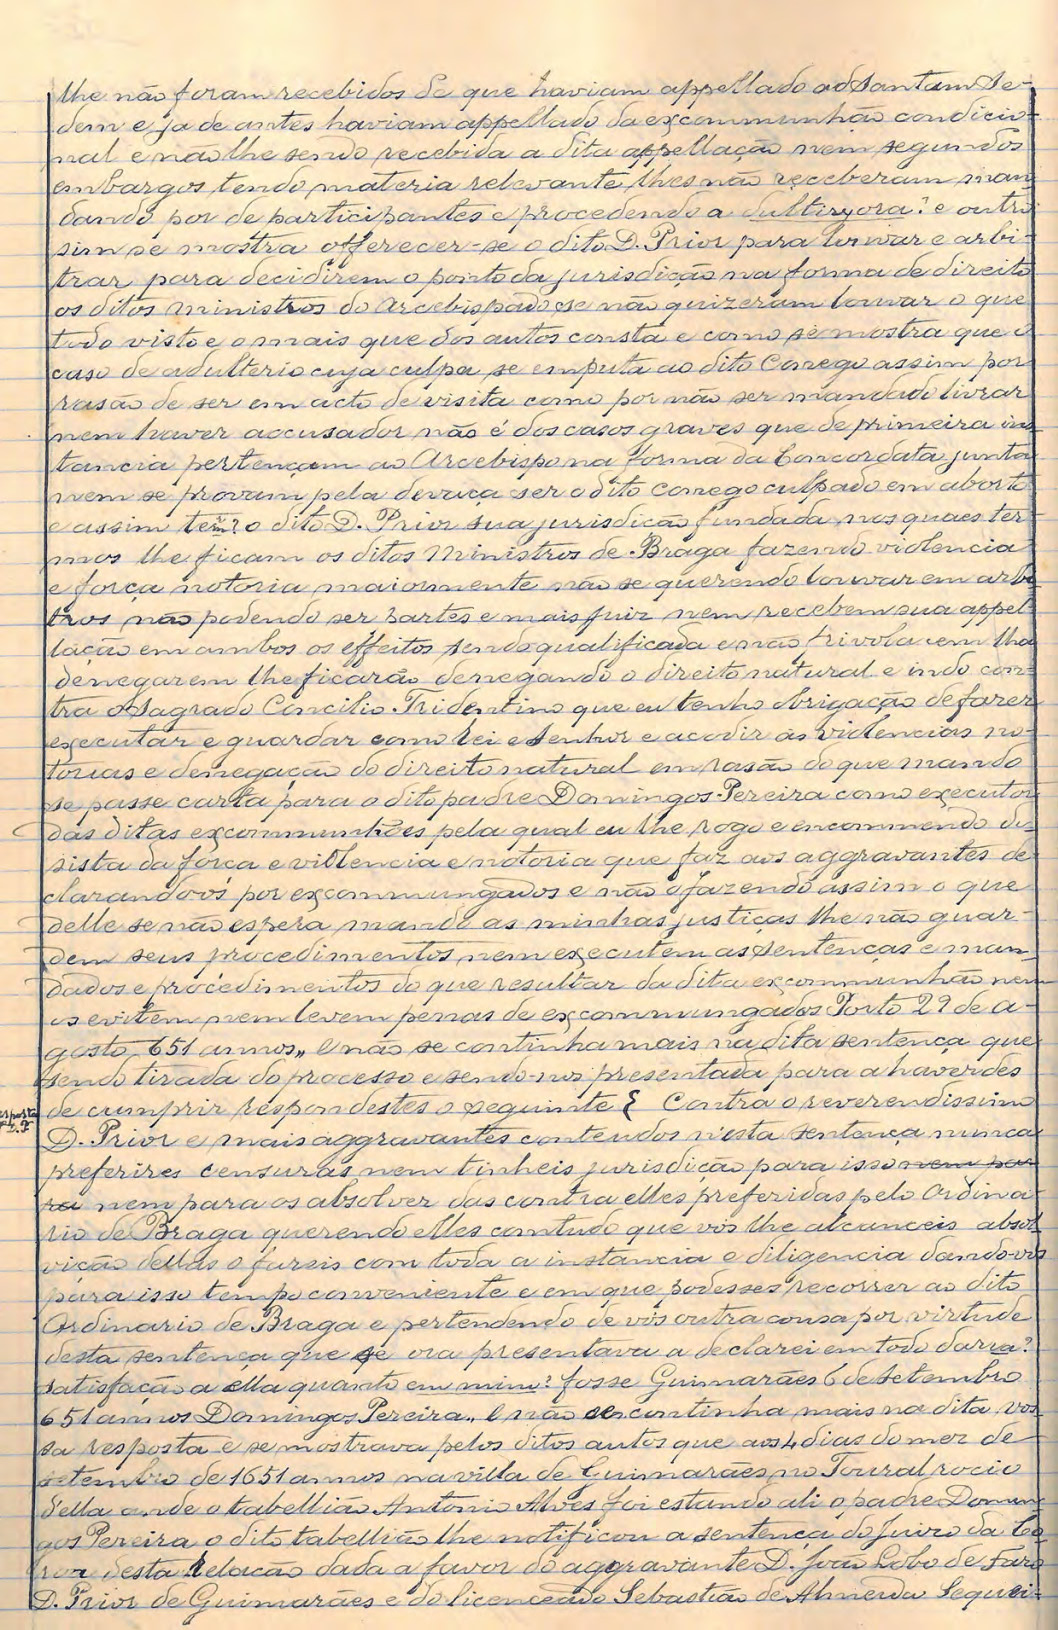 lhe não foram recebidos de que haviam appellado ad Santam Se-
dem e ja de antes haviam appellado da excommunhão condicio-
nal e não lhe sendo recebida a dita appellação nem segundos
embargos tendo materia relevante lhes não receberam man-
dando por de participantes e procedendo a e outro
sim se mostra offerecer-se o dito D. Prior para louvar e arbi-
trar para decidirem o ponto da jurisdição na forma de direito
os ditos ministros do Arcebispado se não quizeram louvar o que
todo visto e o mais que dos autos consta e como se mostra que o
caso de adulterio cuja culpa se emputa ao dito Conego assim por
rasão de ser em acto de visita como por não ser mandado livrar
nem haver accusador não é dos casos graves que de primeira ins
tancia pertençam ao Arcebispo na forma da Concordata junta
nem se provam pela devaça ser o dito conego culpado em aborto
e assim tem? o dito D. Prior sua jurisdicão fundada nos quaes ter-
mos lhe ficam os ditos Ministros de Braga fazendo violencia
e força notoria maiormente não se querendo louvar em arbi
tros não podendo ser partes e mais juiz nem recebem sua appel-
lação em ambos os effeitos sendo qualificada e não frivola e em lha
denegarem lhe ficarão denegando o direito natural e indo con-
tra o Sagrado Concilio Tridentino que eu tenho obrigação de fazer
executar e guardar como rei e senhor e acodir as violencias no-
torias e denegação do direito natural em rasão do que mando
se passe carta para o dito padre Domingos Pereira como executor
das ditas excommunhões pela qual eu lhe rogo e encommendo de-
sista da força e violencia e notoria que faz aos aggravantes de
clarando-os por excommungados e não o fazendo assim o que
delle se não espera mando as minhas justiças lhe não guar-
dem seus procedimentos nem executem as sentenças e man-
dados e procedimentos do que resultar da dita excommunhão nem
os evitem nem levem penas de excommungados Porto 29 de a-
gosto 651 annos,, E não se continha mais na dita sentença que
sendo tirada do processo e sendo-nos presentada para a haverdes
de cumprir respondestes o seguinte { Contra o reverendissimo
D. Prior e mais aggravantes contendos n'esta sentença nunca
preferires censuras nem tinheis jurisdição para isso nem pa
ra nem para os absolver das contra elles preferidas pelo Ordina
rio de Braga querendo elles comtudo que vós lhe alcanceis absol
vição dellas o fareis com toda a instancia e diligencia dando-vos
para isso tempo conveniente e em que podesses recorrer ao dito
Ordinario de Braga e pertendendo de vós outra cousa por virtude
desta sentença que se ora presentava a declarei em todo daria?
satisfação a ella quanto em mim? fosse Guimarães 6 de Setembro
651 annos Domingos Pereira,, E não se continha mais na dita vos
sa resposta e se mostrava pelos ditos autos que aos 4 dias do mez de
setembro de 1651 annos na villa de Guimarães no Toural rocio
della onde o tabellião Antonio Alves foi estando ali o padre Domin
gos Pereira o dito tabellião lhe notificou a sentença do Juizo da Co
roa desta Relacão dada a favor do aggravante D. João Lobo de Faro
D. Prior de Guimarães e do licenceado Sebastião de Almeida Sequei-